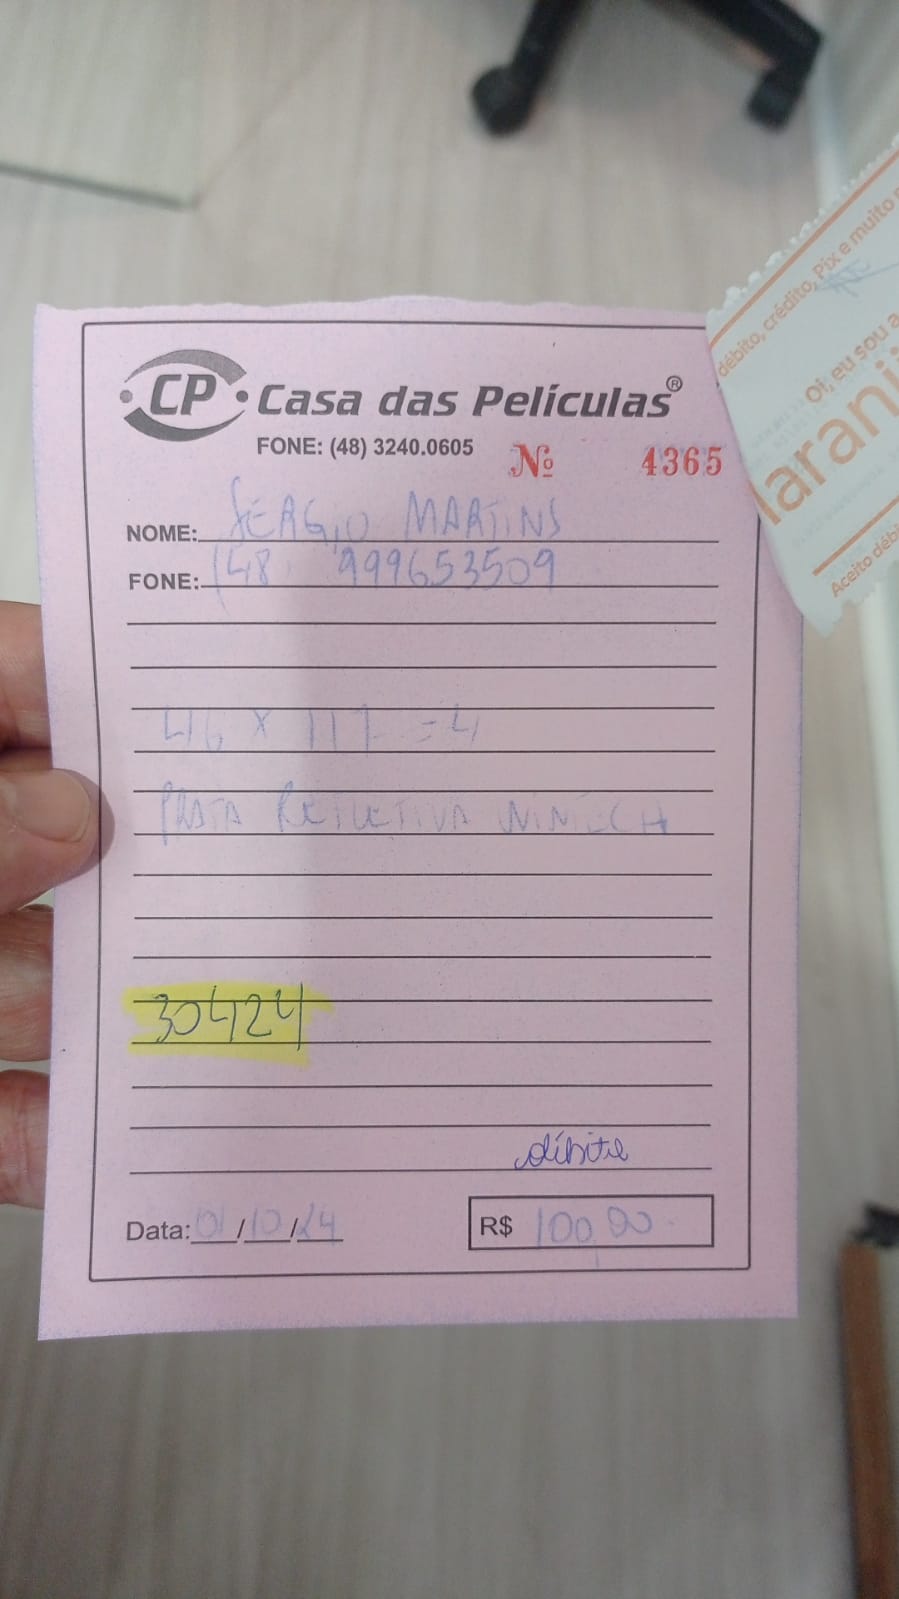 CP
Casa das Películas®
FONE: (48) 3240.0605
Nº 4365
NOME: SERGIO MARTINS
FONE: (48) 999653509
46 x 117 = 4
PRATA REFLETIVA WINTECH
30424
débito
Data: 01/10/24
R$ 100,00
débito, crédito, Pix e muito
Oi, eu sou a
laranj
Aceito débi